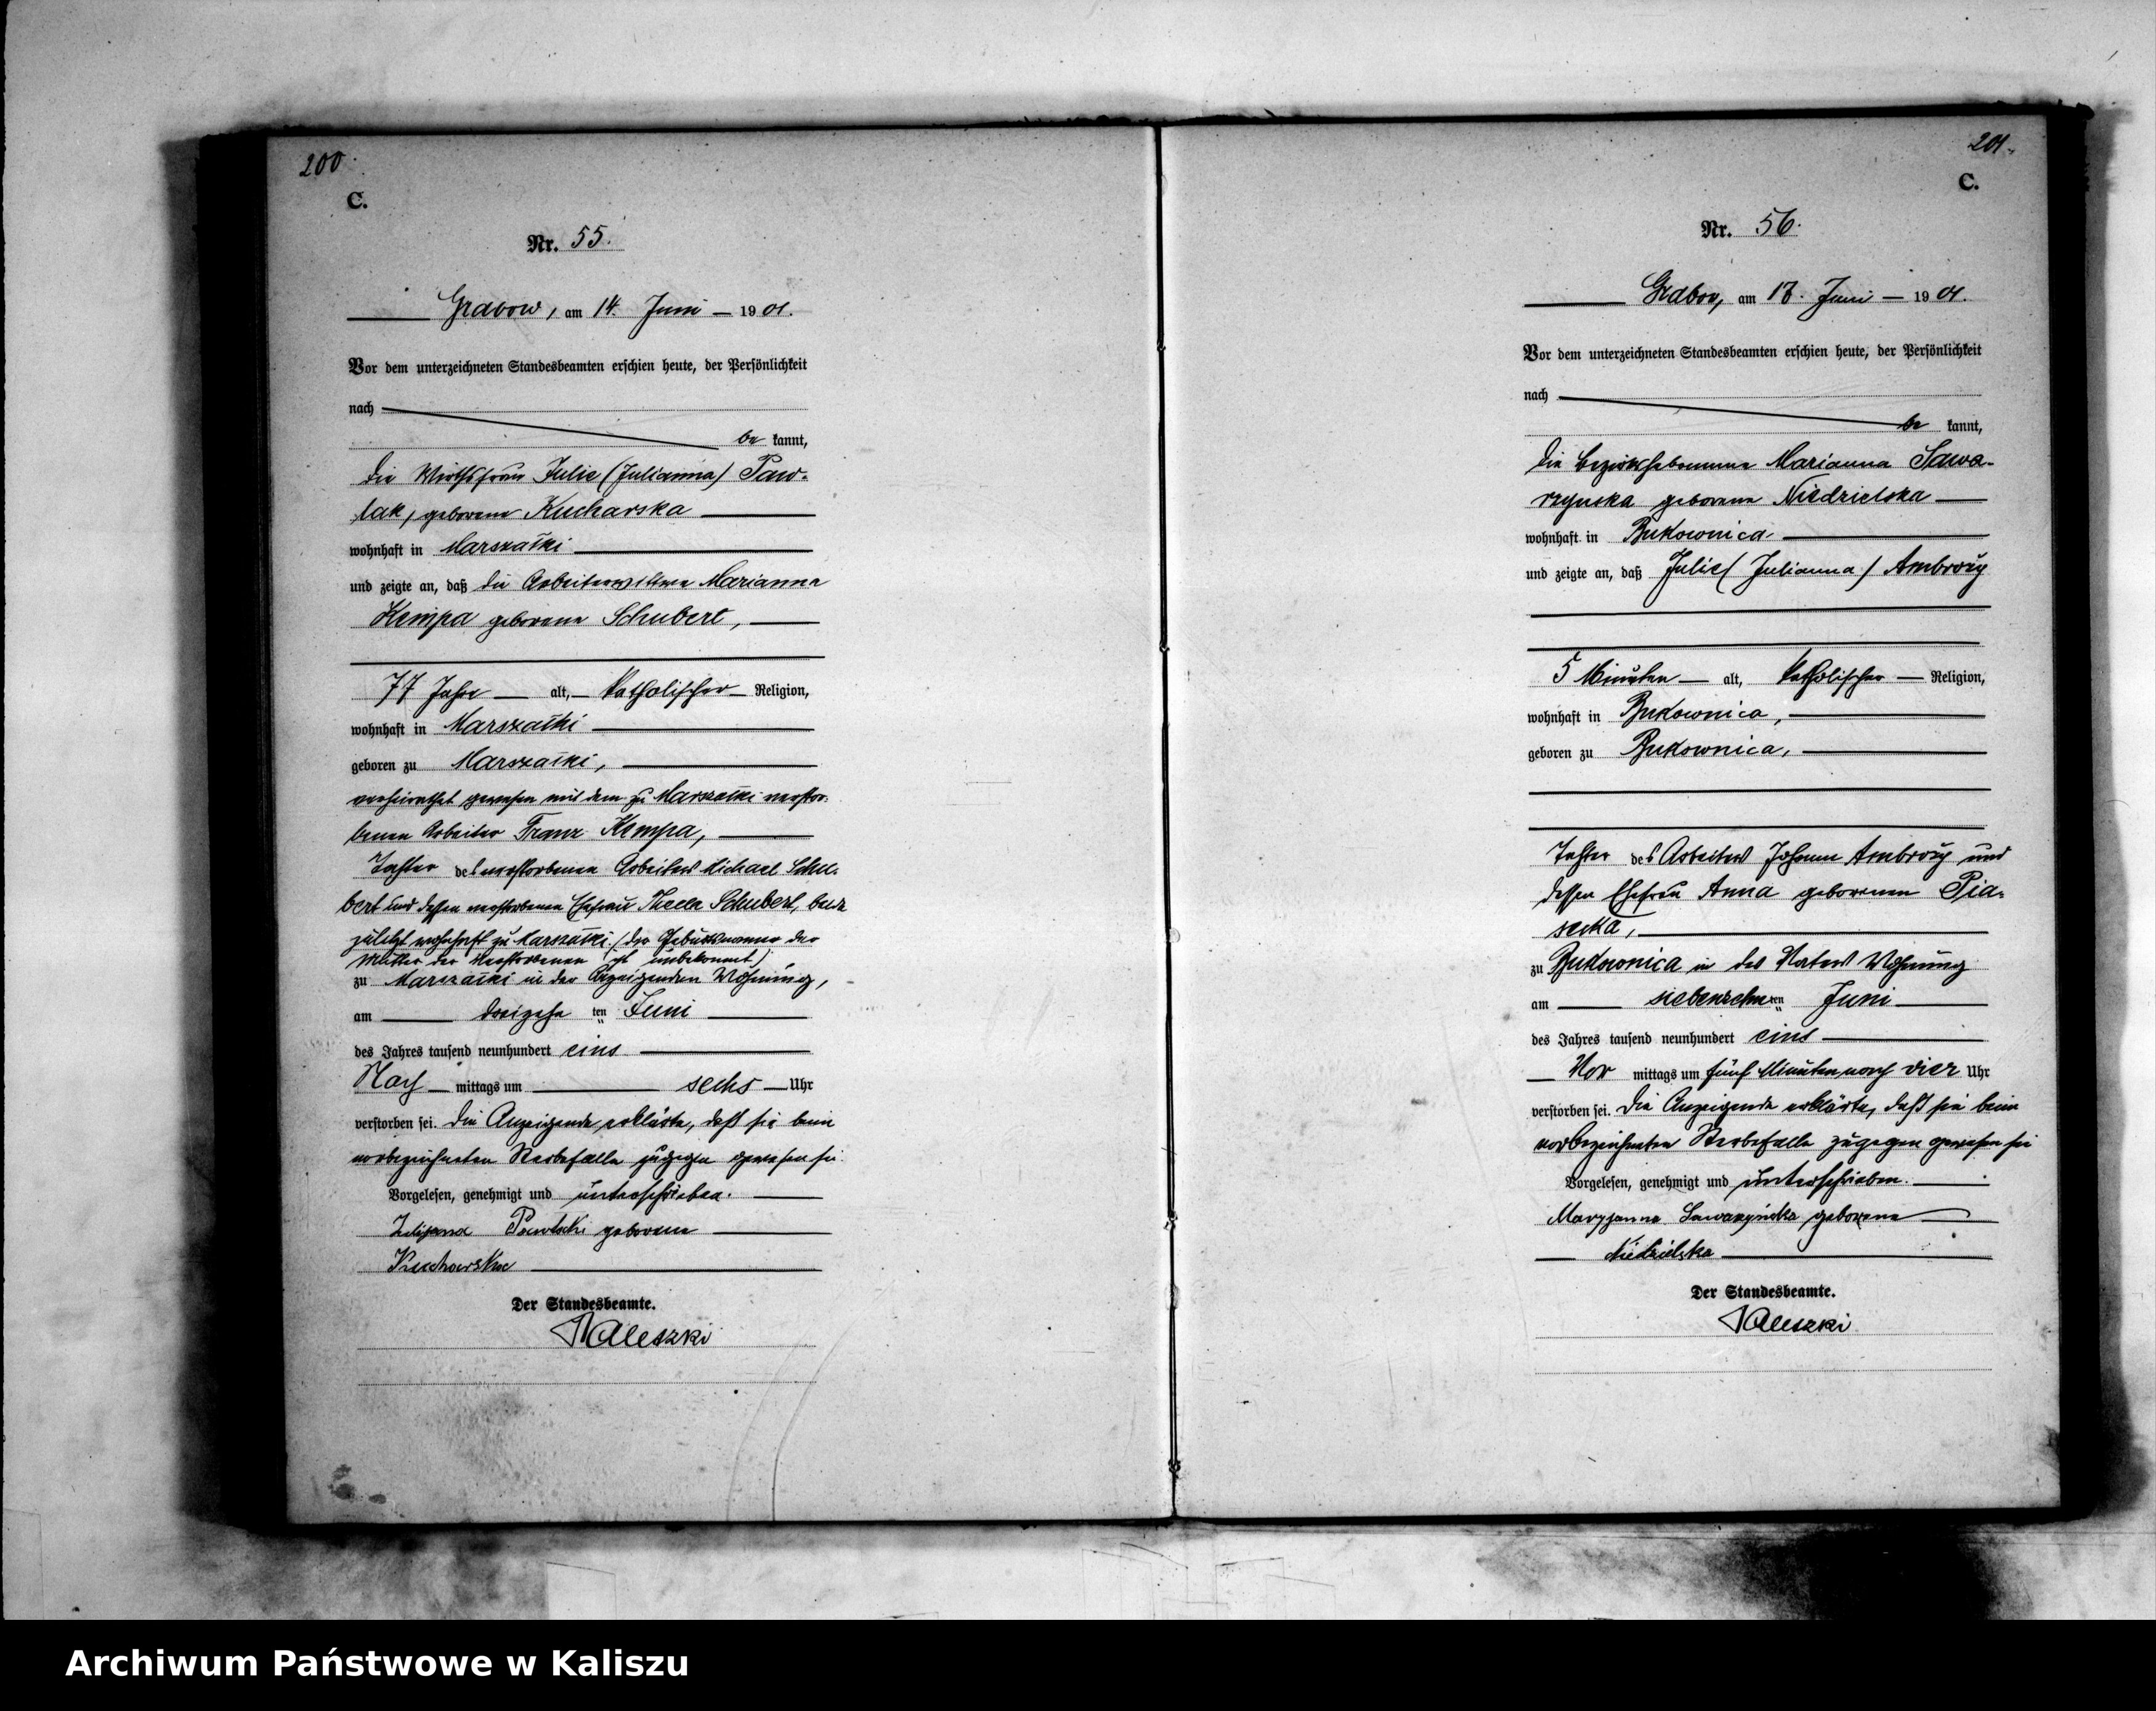 200.
C.
Nr. 55.
Grabow, am 14. Juni 1901.
Vor dem unterzeichneten Standesbeamten erschien heute, der Persönlichkeit
nach
be kannt,
die Wirthsfrau Julie (Julianna) Paw-
lak, geborene Kucharska
wohnhaft in Marszałki
und zeigte an, daß die Arbeiterwittwe Marianna
Kempa geborene Schubert,
77 Jahre alt, katholischer Religion,
wohnhaft in Marszałki
geboren zu Marszałki,
verheirathet gewesen mit dem zu Marszałki verstor-
benen Arbeiter Franz Kempa,
Tochter des verstorbenen Arbeiters Michael Schu-
bert und dessen verstorbenen Ehefrau Schubert, beide
zuletzt wohnhaft zu Marszałki (der Geburtsname der
Mutter der Verstorbenen ist unbekannt)
zu Marszałki in der Anzeigenden Wohnung,
am dreizehn ten Juni
des Jahres tausend neunhundert eins
Nach mittags um sechs Uhr
verstorben sei. Die Anzeigende erklärte, daß sie beim
vorbezeichneten Sterbefalle zugegen gewesen sei.
Vorgelesen, genehmigt und unterschrieben.
geborene
Kucharska
Der Standesbeamte.
201.
C.
Nr. 56.
Grabow, am 17. Juni 1901.
Vor dem unterzeichneten Standesbeamten erschien heute, der Persönlichkeit
nach
be kannt,
die Bezirkshebamme Marianna Sawa-
rzynska geborene Niedzielska
wohnhaft in Bukownica
und zeigte an, daß Julie (Julianna) Ambroży
5 Minuten alt, katholischer Religion,
wohnhaft in Bukownica,
geboren zu Bukownica,
Tochter des Arbeiters Johann Ambroży und
dessen Ehefrau Anna geborenen Pia-
secka,
zu Bukownica in des Vaters Wohnung
am siebenzehn ten Juni
des Jahres tausend neunhundert eins
Vor mittags um fünf Minuten nach vier Uhr
verstorben sei. Die Anzeigende erklärte, daß sie beim
vorbezeichneten Sterbefalle zugegen gewesen sei
Vorgelesen, genehmigt und unterschrieben.
Maryjanna Sawarzyńska geborene
Niedzielska
Der Standesbeamte.
Archiwum Państwowe w Kaliszu